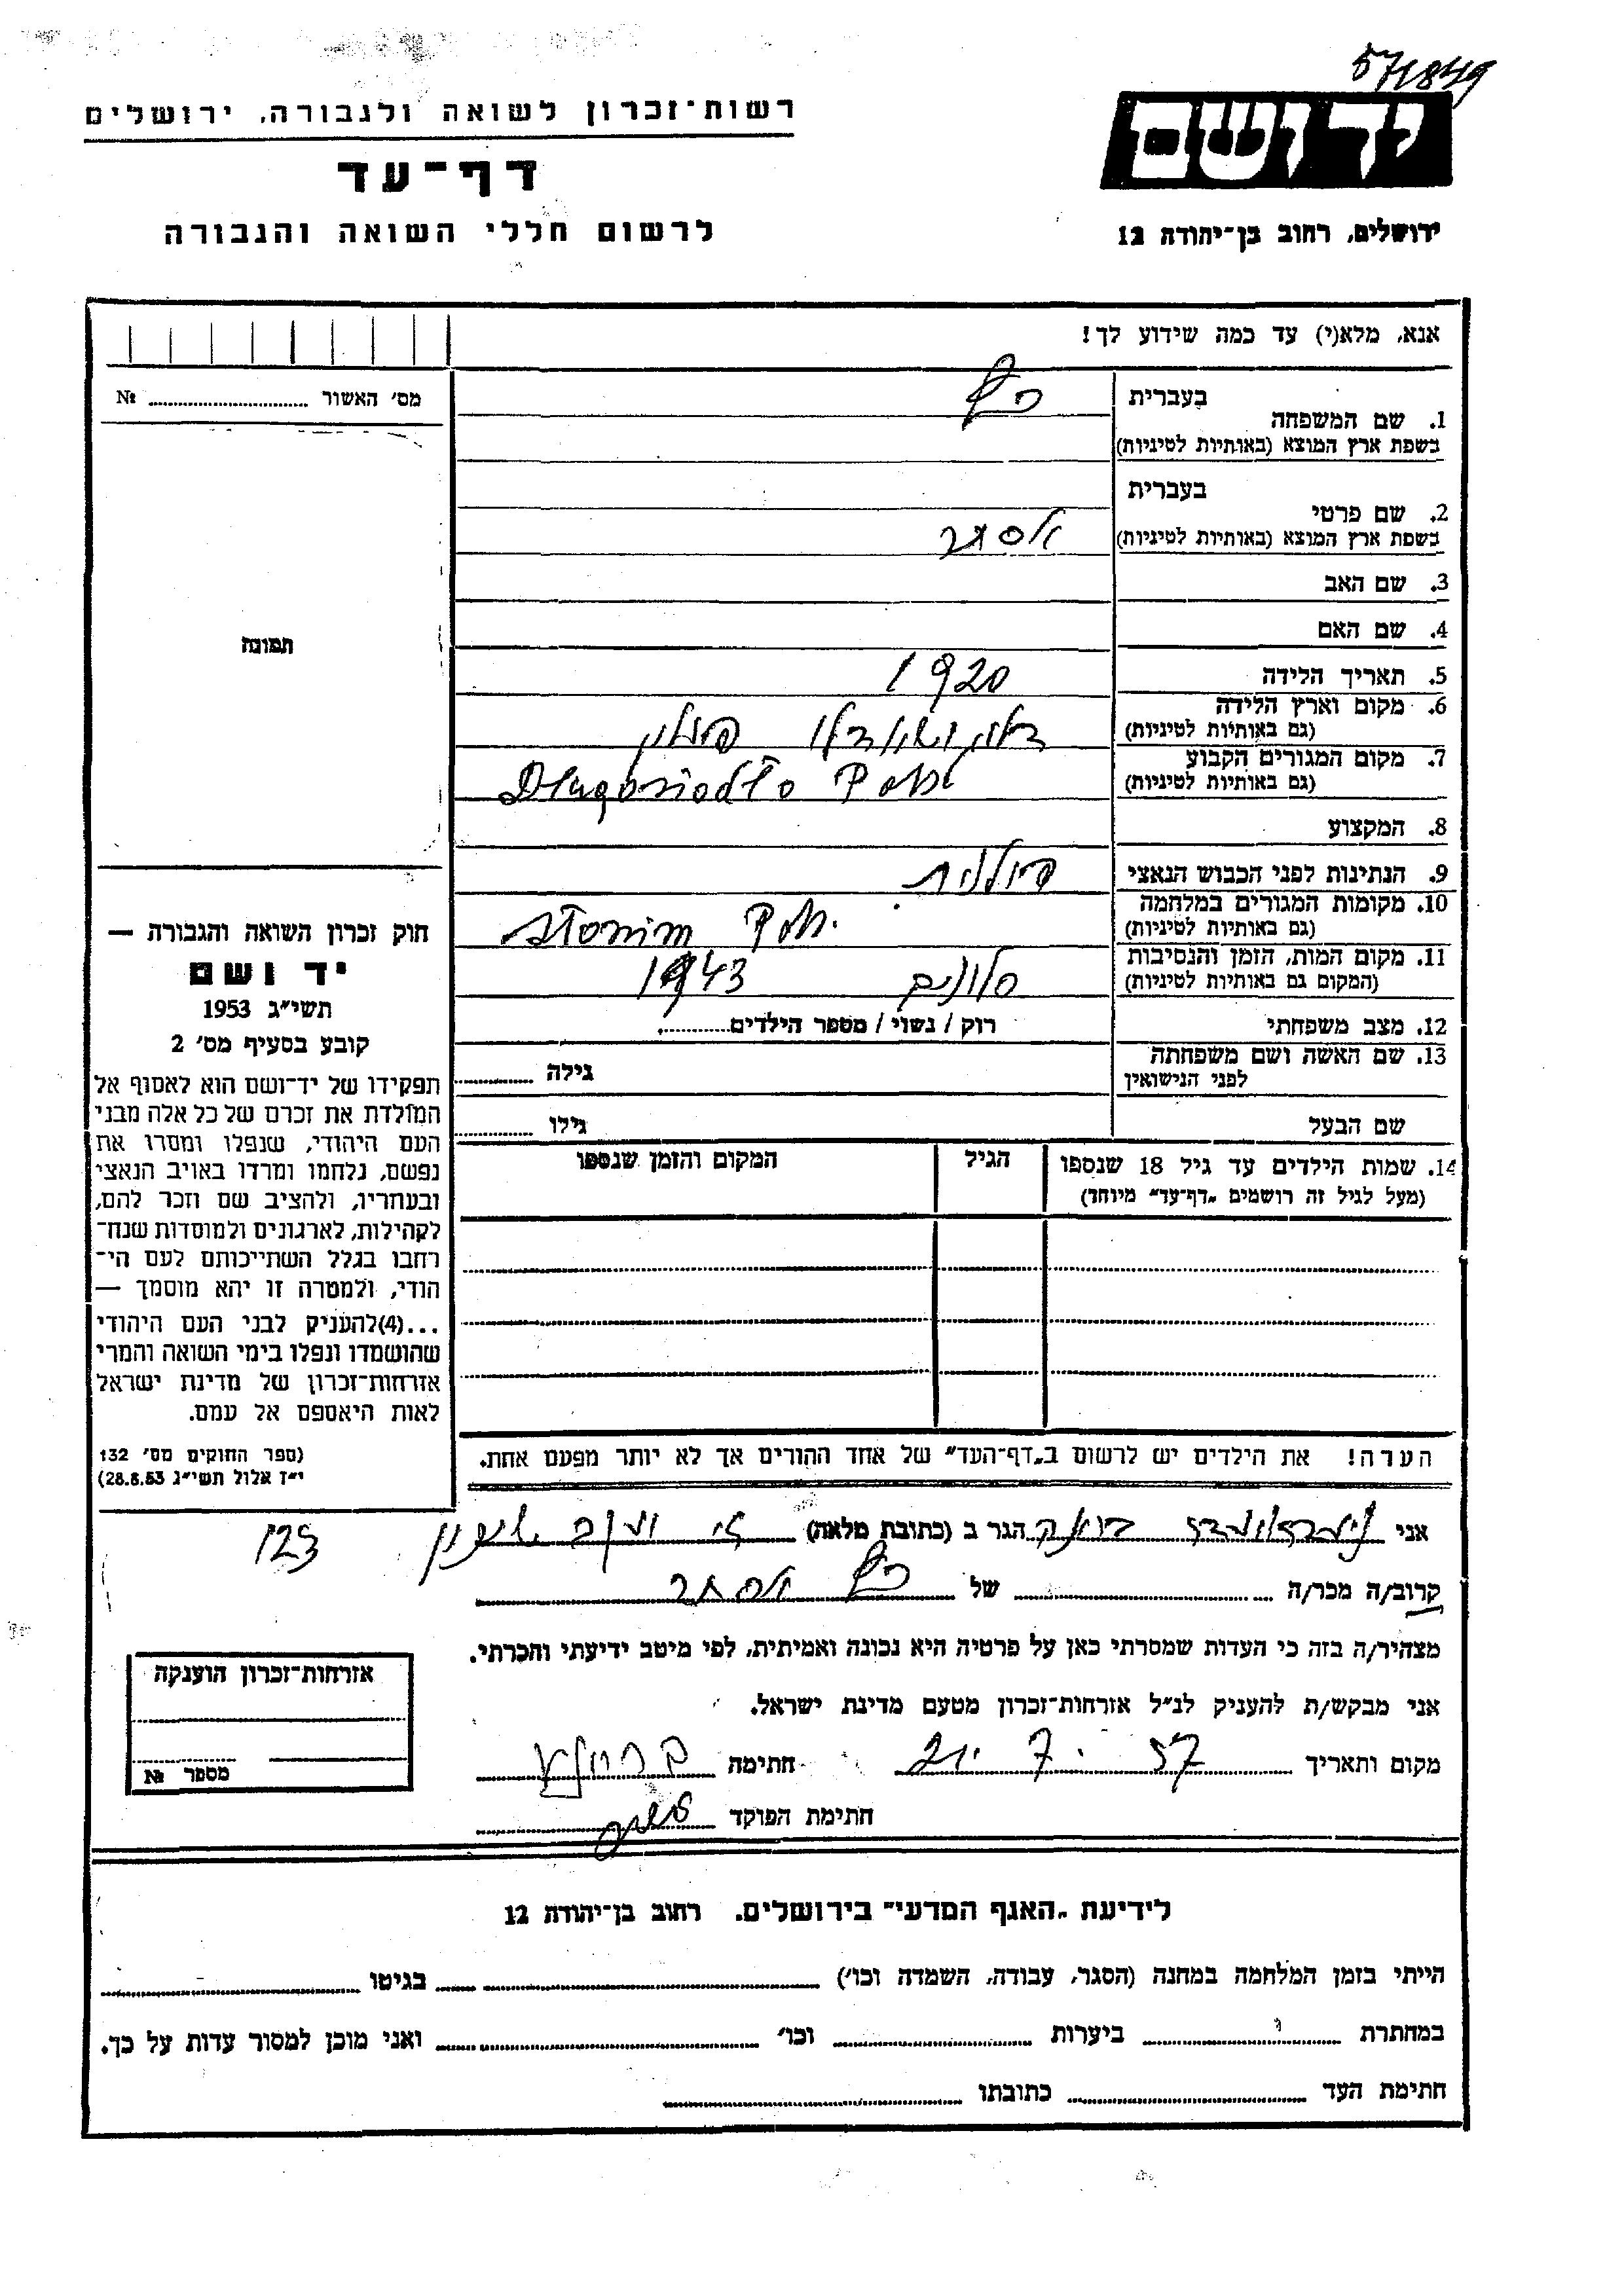 571849
יד ושם
ירושלים, רחוב בן־יהודה 12
רשות־זכרון לשואה ולגבורה, ירושלים
דף־עד
לרשום חללי השואה והגבורה
אנא, מלא(י) עד כמה שידוע לך!
מס׳ האשור № 
תמונה
1. שם המשפחה בעברית כץ
בשפת ארץ המוצא (באותיות לטיניות)
2. שם פרטי בעברית
בשפת ארץ המוצא (באותיות לטיניות) אסתר
3. שם האב
4. שם האם
5. תאריך הלידה 1920
6. מקום וארץ הלידה (גם באותיות לטיניות) פולין
7. מקום המגורים הקבוע (גם באותיות לטיניות)
8. המקצוע
9. הנתינות לפני הכבוש הנאצי פולנית
10. מקומות המגורים במלחמה (גם באותיות לטיניות) Słonim Pol.
11. מקום המות, הזמן והנסיבות (המקום גם באותיות לטיניות) סלונים 1943
12. מצב משפחתי רוק / נשוי / מספר הילדים
13. שם האשה ושם משפחתה לפני הנישואין גילה
שם הבעל גילו
14. שמות הילדים עד גיל 18 שנספו הגיל המקום והזמן שנספו
(מעל לגיל זה רושמים „דף־עד״ מיוחד)
הערה! את הילדים יש לרשום ב„דף־העד״ של אחד ההורים אך לא יותר מפעם אחת.
חוק זכרון השואה והגבורה —
יד ושם
תשי״ג 1953
קובע בסעיף מס׳ 2
תפקידו של יד־ושם הוא לאסוף אל
המולדת את זכרם של כל אלה מבני
העם היהודי, שנפלו ומסרו את
נפשם, נלחמו ומרדו באויב הנאצי
ובעחריו, ולהציב שם וזכר להם,
לקהילות, לארגונים ולמוסדות שנח־
רחבו בגלל השתייכותם לעם הי־
הודי, ולמטרה זו יהא מוסמך —
...(4)להעניק לבני העם היהודי
שהושמדו ונפלו בימי השואה והמרי
אזרחות־זכרון של מדינת ישראל
לאות היאספם אל עמם.
(ספר החוקים מס׳ 132
י״ז אלול תשי״ג 28.8.53)
אני הגר ב (כתובת מלאה) 123
קרוב/ה מכר/ה של כץ אסתר
מצהיר/ה בזה כי העדות שמסרתי כאן על פרטיה היא נכונה ואמיתית, לפי מיטב ידיעתי והכרתי.
אני מבקש/ת להעניק לנ״ל אזרחות־זכרון מטעם מדינת ישראל.
מקום ותאריך 21. 7. 57 חתימה
חתימת הפוקד
אזרחות־זכרון הוענקה
מספר №
לידיעת „האגף המדעי״ בירושלים. רחוב בן־יהודה 12
הייתי בזמן המלחמה במחנה (הסגר, עבודה, השמדה וכו׳) בגיטו
במחתרת ביערות וכו׳ ואני מוכן למסור עדות על כך.
חתימת העד כתובתו